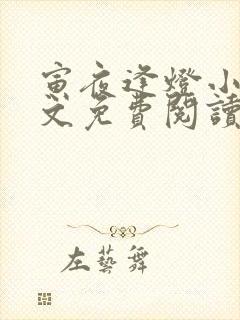 寅夜逢燈小
文免費閱讀
左藝舞